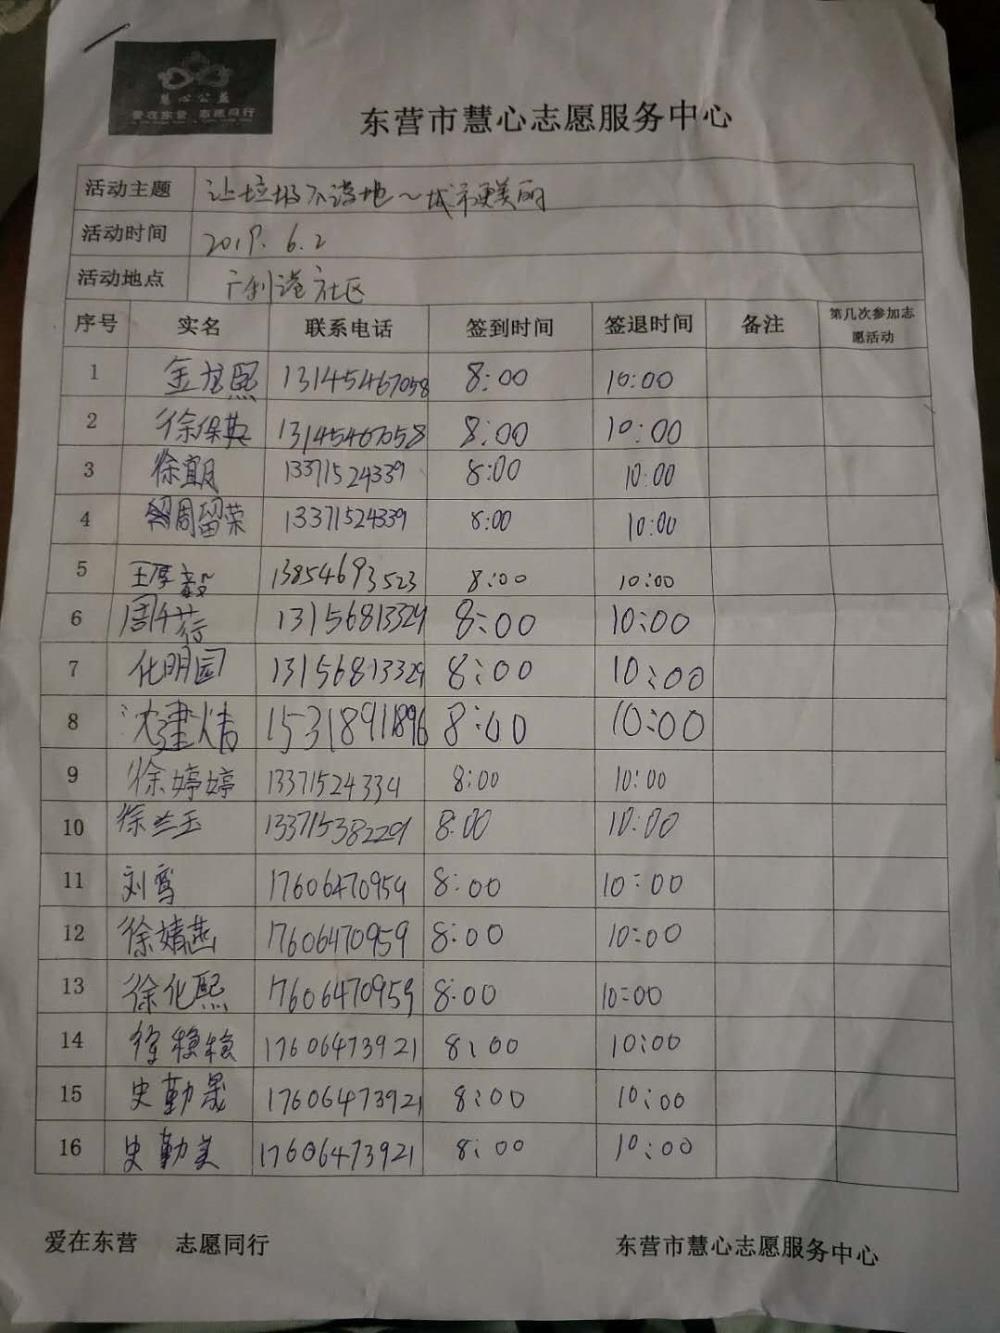 慧心公益
爱在东营 志愿同行
东营市慧心志愿服务中心
活动主题 让垃圾不落地~城市更美丽
活动时间 2019.6.2
活动地点 广利港社区
序号 实名 联系电话 签到时间 签退时间 备注 第几次参加志愿活动
1 金龙熙 13145467058 8:00 10:00
2 徐保英 13145467058 8:00 10:00
3 徐宜月 13371524339 8:00 10:00
4 周留荣 13371524339 8:00 10:00
5 王厚毅 13854693523 8:00 10:00
6 13156813329 8:00 10:00
7 化明园 13156813329 8:00 10:00
8 沈建 15318911896 8:00 10:00
9 徐婷婷 13371524339 8:00 10:00
10 徐兰玉 13371538229 8:00 10:00
11 刘莺 17606470959 8:00 10:00
12 徐婧燕 17606470959 8:00 10:00
13 徐化熙 17606470959 8:00 10:00
14 徐稳稳 17606473921 8:00 10:00
15 史勤晟 17606473921 8:00 10:00
16 史勤美 17606473921 8:00 10:00
爱在东营 志愿同行 东营市慧心志愿服务中心